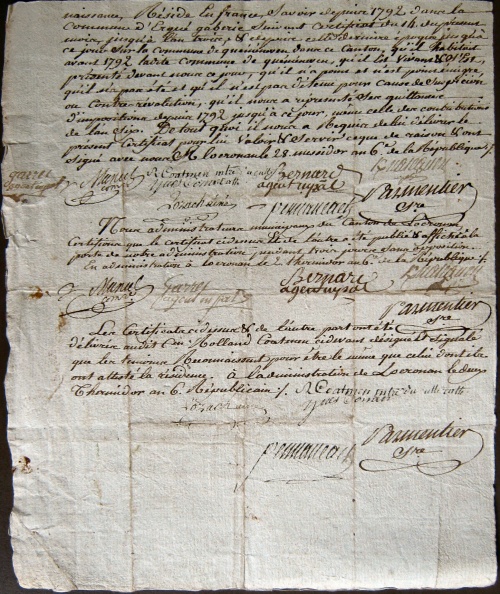 naissance, Réside en france, Savoir depuis 1792 dans la
Commune d'Ergué gabéric Suivant Certificat du 14 du présent
mois, jusqu'à l'an trois, et depuis cette dernière époque jusqu'à
ce jour sur la commune de quéménéven dans ce Canton, qu'il habitait
avant 1792 la de Commune de quéménéven, qu'il est vivant & s'est
présenté devant nous ce jour, qu'il n'a point et n'est point émigré,
qu'il n'a pas été et qu'il n'est pas détenu pour Cause de Suspicion
ou Contre-révolution, qu'il nous a représenté Ses quittances
d'impositions depuis 1792 jusqu'à ce jour, même celle des contributions
de l'an Six. De tout quoi il nous a Requis de lui délivrer le
présent Certificat pour lui Valoir & Servir ce que de raison & ont
signé avec nous. A locronan le 28 messidor an 6.e de la République
garrec
Manuel
R Coatmen
Bernard
agent mpal
Parmentier
Sre
Nous administrateurs municipaux du Canton de Locronan
Certifions que le certificat cidessus & de l'autre a été publié & affiché à la
porte de notre administration pendant trois jours sans opposition.
En administration à Locronan le 2 thermidor an 6.e de la République
Manuel
Garrec
agent mpal
Bernard
agent mpal
Parmentier
Sre
Les Certificats cidessus & de l'autre part ont été
délivrés audit Cen Rolland Coatmen cidevant désigné et Signalé
que les témoins Reconnaissent pour être le même que celui dont ils
ont attesté la résidence, à l'administration de Locronan le deux
Thermidor an 6. Républicain
R Coatmen
Parmentier
Sre